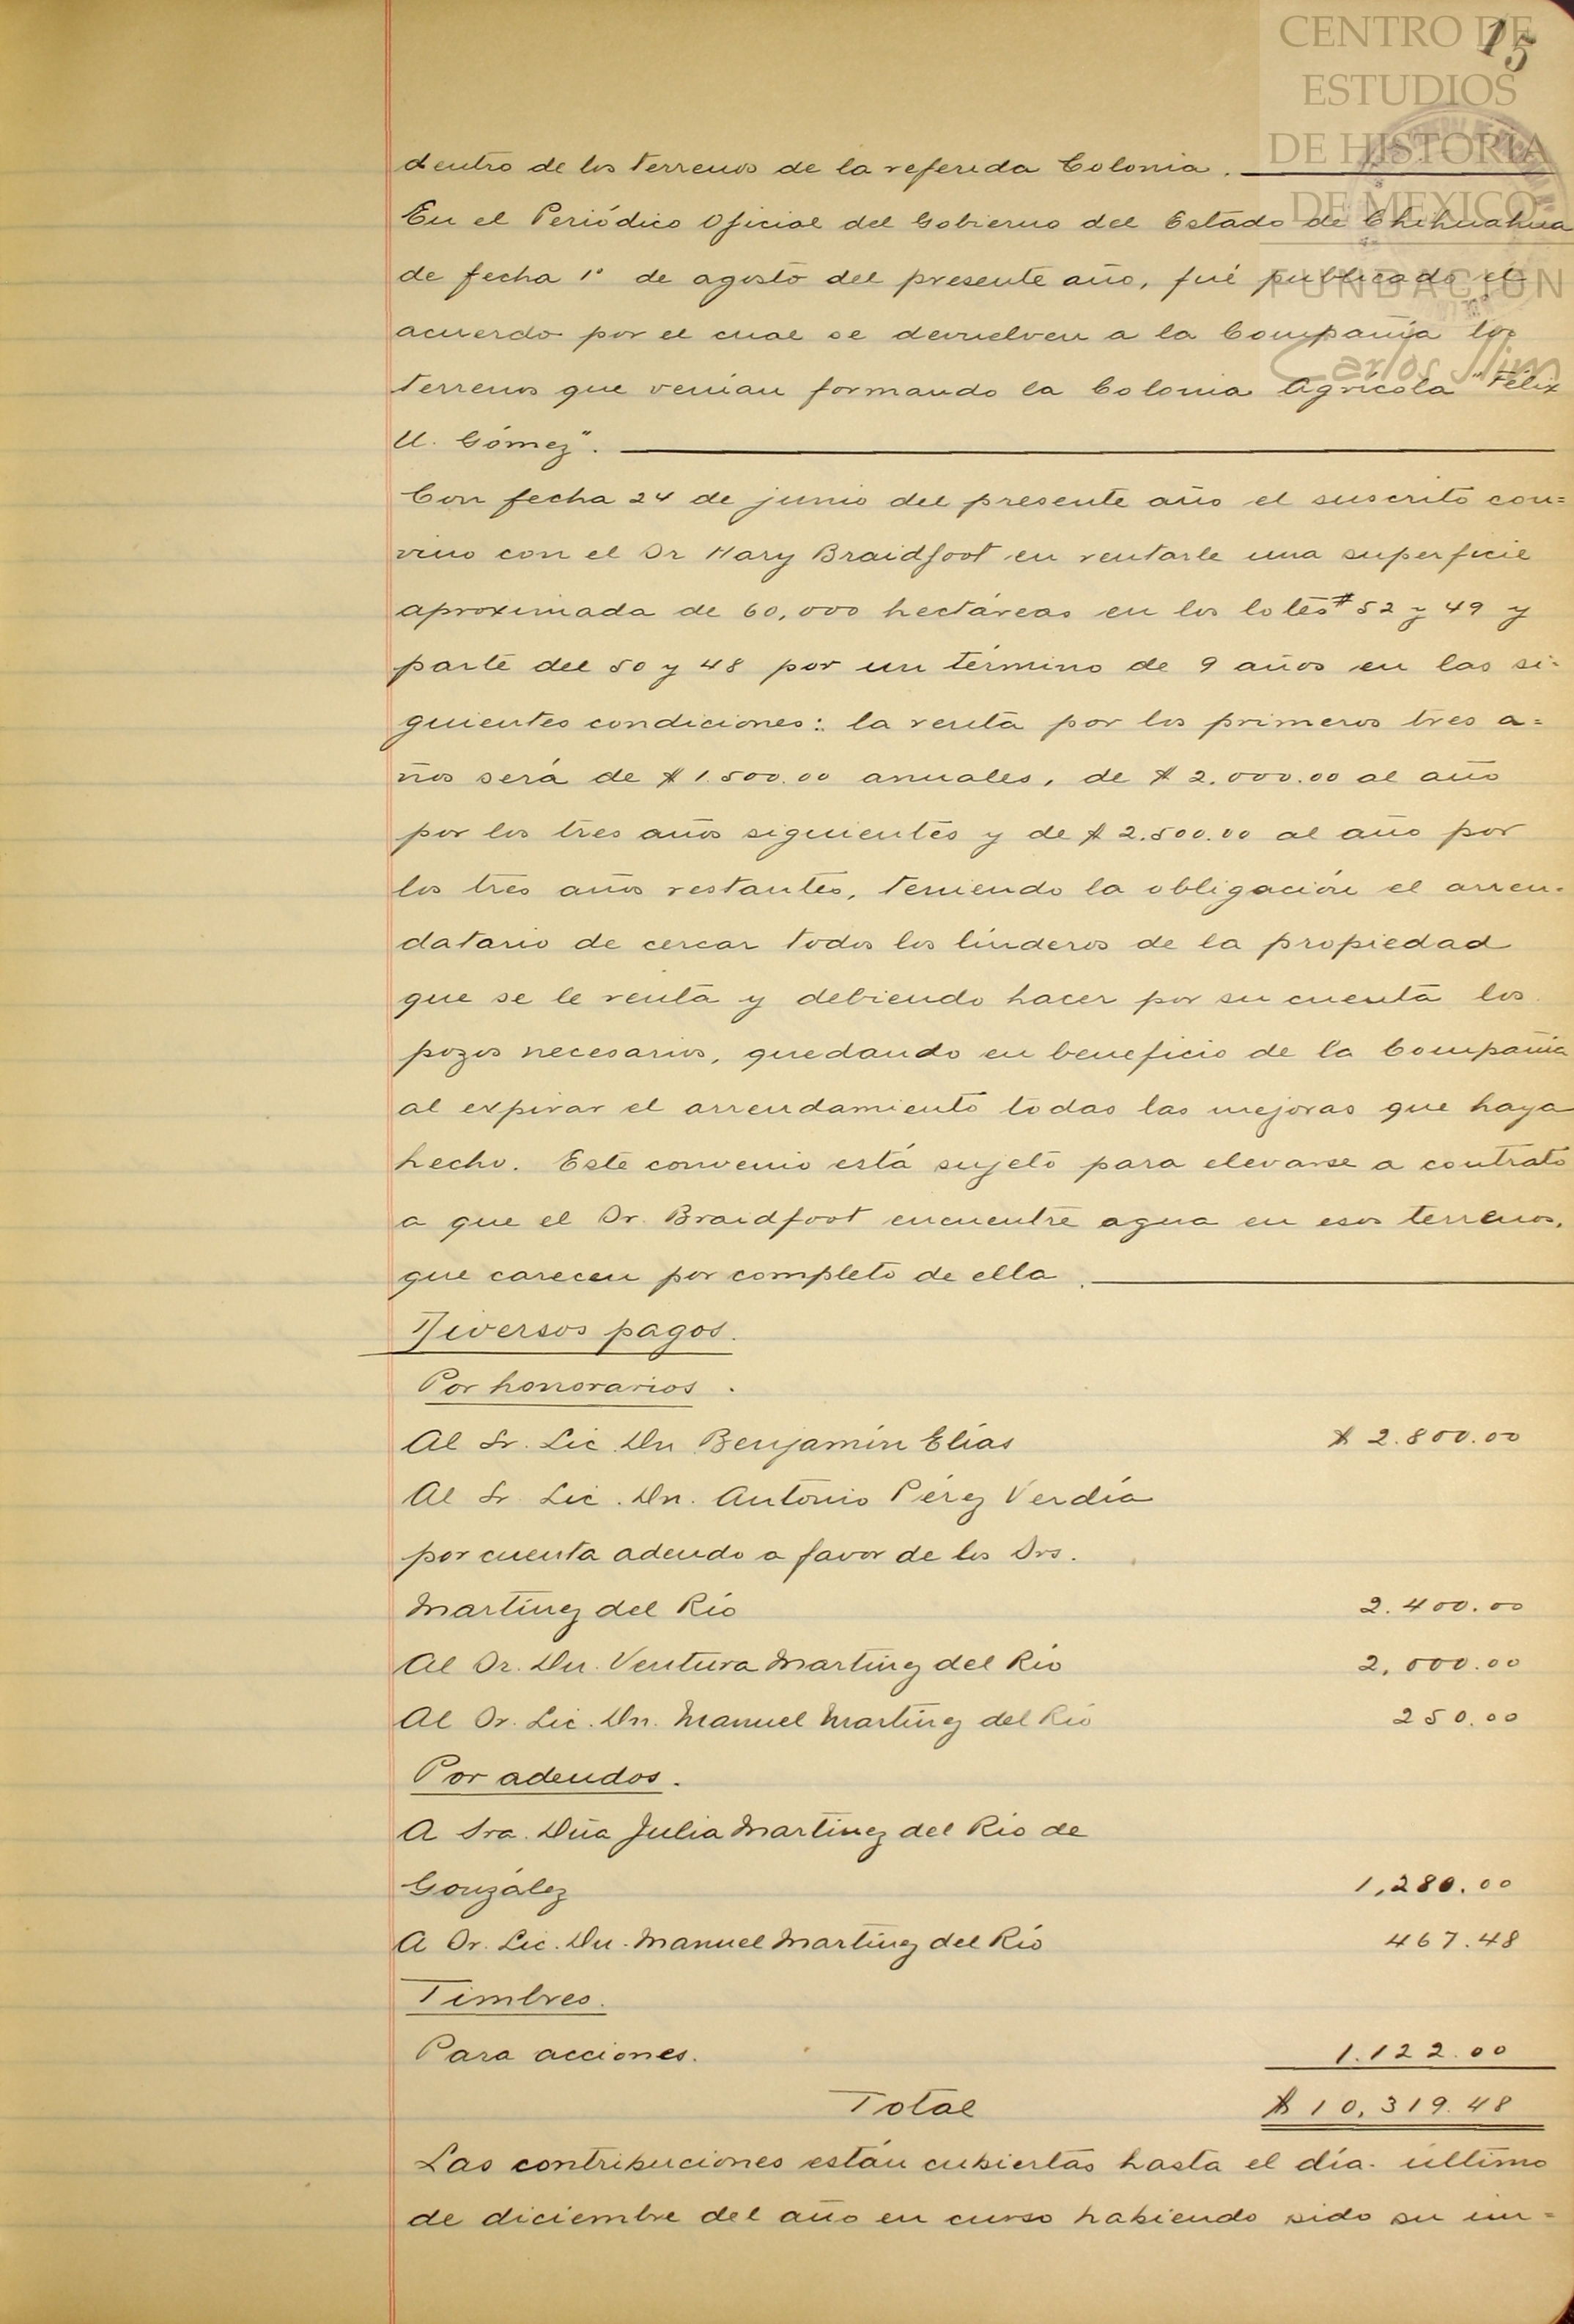 15
CENTRO DE
ESTUDIOS
DE HISTORIA
DE MEXICO
FUNDACIÓN
Carlos Slim
dentro de los terrenos de la referida Colonia.
En el Periódico Oficial del Gobierno del Estado de Chihuahua
de fecha 1° de agosto del presente año, fué publicado el
acuerdo por el cual se devuelven a la Compañía los
terrenos que venían formando la Colonia Agrícola "Félix
U. Gómez".
Con fecha 24 de junio del presente año el suscrito con=
vino con el Sr Hary Braidfoot en rentarle una superficie
aproximada de 60,000 hectáreas en los lotes # 52 y 49 y
parte del 50 y 48 por un término de 9 años en las si=
guientes condiciones: la renta por los primeros tres a=
ños será de $ 1.500.00 anuales, de $ 2.000.00 al año
por los tres años siguientes y de $ 2.500.00 al año por
los tres años restantes, teniendo la obligación el arren-
datario de cercar todos los linderos de la propiedad
que se le renta y debiendo hacer por su cuenta los
pozos necesarios, quedando en beneficio de la Compañía
al expirar el arrendamiento todas las mejoras que haya
hecho. Este convenio está sujeto para elevarse a contrato
a que el Sr. Braidfoot encuentre agua en esos terrenos,
que carecen por completo de ella.
Diversos pagos.
Por honorarios.
Al Sr. Lic Dn Benjamín Elías $ 2.800.00
Al Sr. Lic. Dn. Antonio Pérez Verdía
por cuenta adeudo a favor de los Srs.
Martínez del Río 2.400.00
Al Sr. Dn. Ventura Martínez del Río 2,000.00
Al Sr. Lic. Dn. Manuel Martínez del Río 250.00
Por adeudos.
A Sra. Dña Julia Martínez del Río de
González 1,280.00
A Sr. Lic. Dn. Manuel Martínez del Río 467.48
Timbres.
Para acciones. 1.122.00
Total $ 10,319.48
Las contribuciones están cubiertas hasta el día último
de diciembre del año en curso habiendo sido su im=